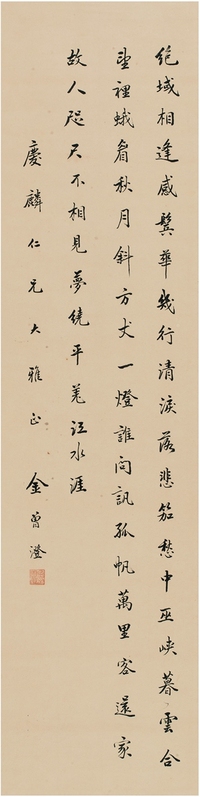 絕域相逢感鬢華幾行清淚落悲笳愁中巫峽暮雲合
望裡蛾眉秋月斜方丈一燈誰問訊孤帆萬里客還家
故人咫尺不相見夢繞平羌江水涯
慶麟仁兄大雅正 金曾澄